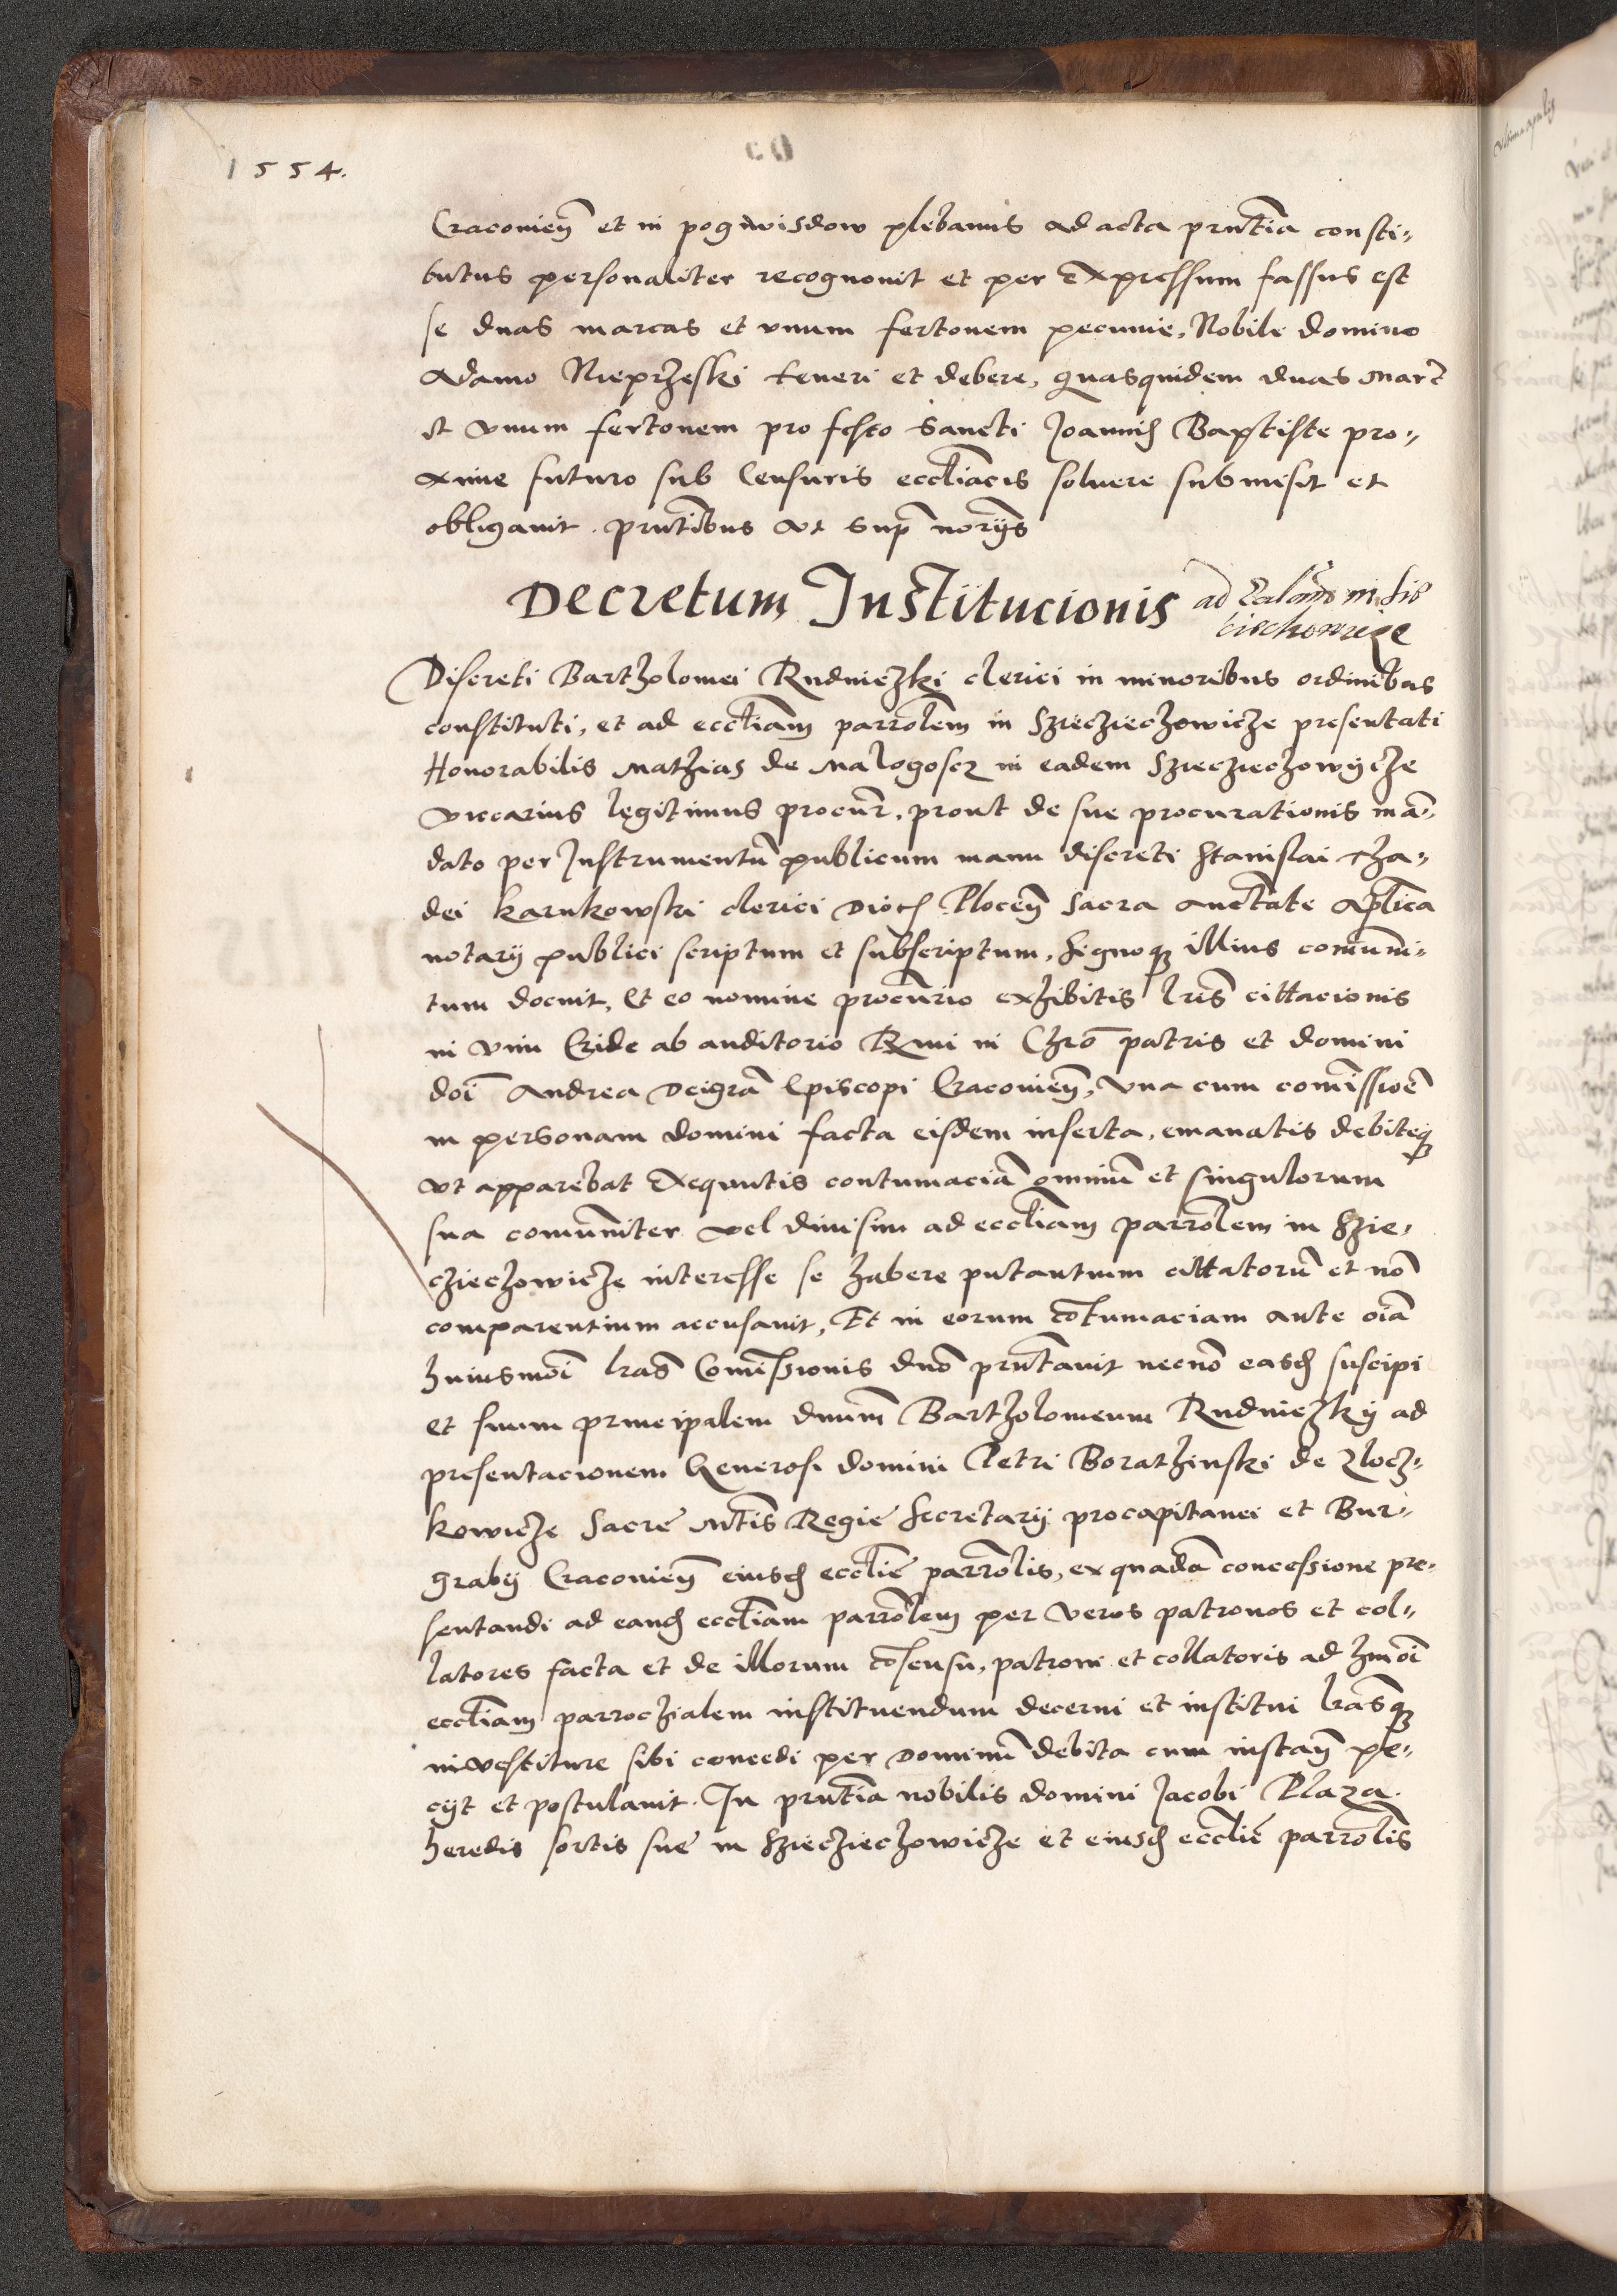 1554.
Craconieñ et in pogwisdow plebanus ad acta prñtia consti„
tutus personaliter recognouit et per Expressum fassus est
se duas marcas et vnum fertonem pecunie, Nobili domino
Adamo Nieprzeski teneri et debere, quasquidem duas marc̃
et vnum fertonem pro festo Sancti Joannis Baptiste pro„
xime futuro sub Censuris ecctiacis soluere submisit et
obligauit. prñtibus vt sup̃ norijs
Decretum Institucionis ad
Discreti Bartholomei Rudniczki clerici in minoribus ordinibus
constituti, et ad eccliam parrolem in Szieczieczhowicze presentati
Honorabilis Mathias de Malogoscz in eadem Szieczieczhowycze
viccarius legitimus procur̃, prout de sue procurationis mã„
dato per Instrumentũ publicum manu discreti Stanislai Tha„
dei Karnkowski clerici Dioc̃ Ploceñ Sacra auctate Aplica
notarij publici scriptum et subscriptum, signoq illius comuni„
tum docuit, Et eo nomine procurio exhibitis lris cittacionis
in vim Cride ab auditorio Rmi in Chro patris et domini
doi Andrea Dei gra Episcopi Craconieñ, vna cum comissioe
in personam domini facta eisdem inserta, emanatis debiteq
vt apparebat Exequutis contumaciã omniũ et singulorum
sua comuniter vel diuisim ad eccliam parrolem in Szie„
czieczhowicze interesse se habere putantium cittatorũ et nõ
comparentium accusauit, Et in eorum cõtumaciam ante oia
huiusmoi lras Comissionis dno prñtauit necnõ easd suscipi
et suum principalem dnum Bartholomeum Rudniczky ad
presentacionem Generosi domini Petri Borathinski de Zlocz„
kowicze Sacre Mtis Regie Secretarij procapitanei et Bur„
grabij Craconieñ eiusd ecclie parrolis, ex quadã concessione pre„
sentandi ad eand eccliam parrolem per veros patronos et col„
latores facta et de illorum cõsensu, patroni et collatoris ad hmoi
eccliam parrochialem instituendum decerni et institui lrasq
inuestiture sibi concedi per Dominũ debita cum instañ pe„
cijt et postulauit. In prñtia nobilis domini Jacobi Plaza
heredis sortis sue in Szieczieczhowicze et eiusd ecclie parrolis